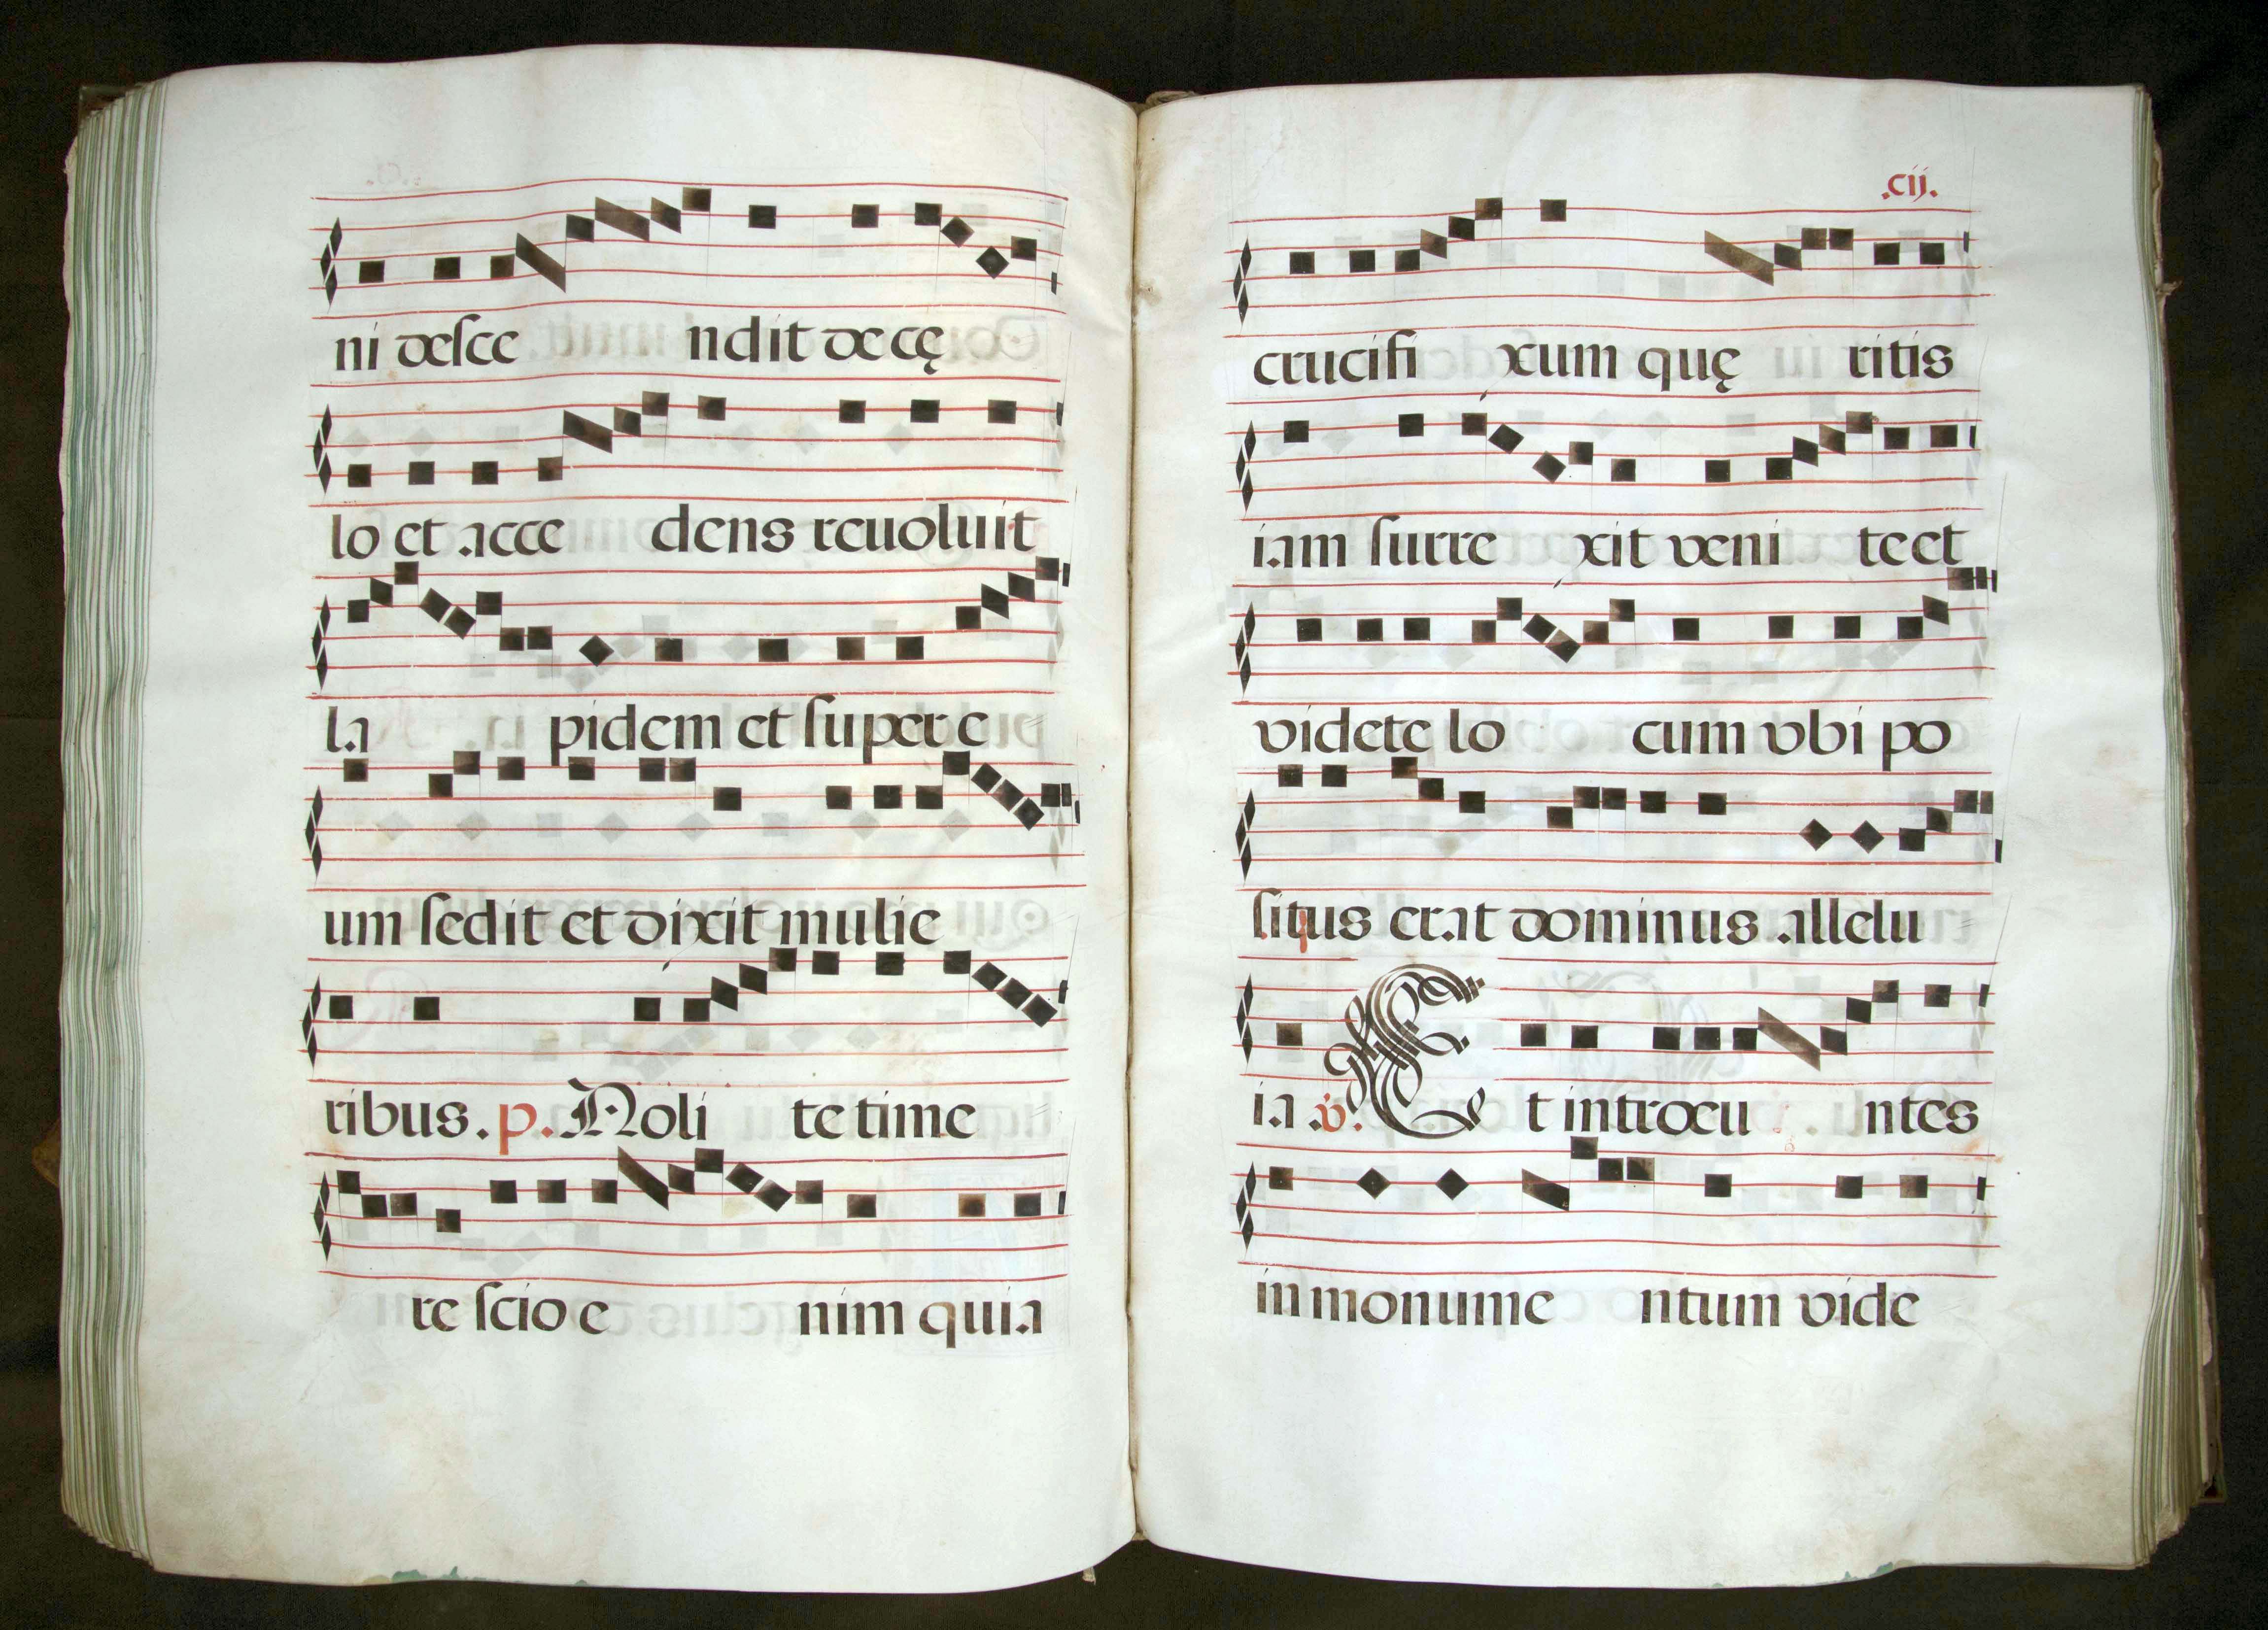 ni descendit de cę
lo et accedens reuoluit
lapidem et super e
um sedit et dixit mulie
ribus. p. Nolite time
re scio enim quia
.cij.
crucifixum quęritis
iam surrexit venite et
videte locum vbi po
situs erat dominus allelu
ia .v. Et introeuntes
in monumentum vide